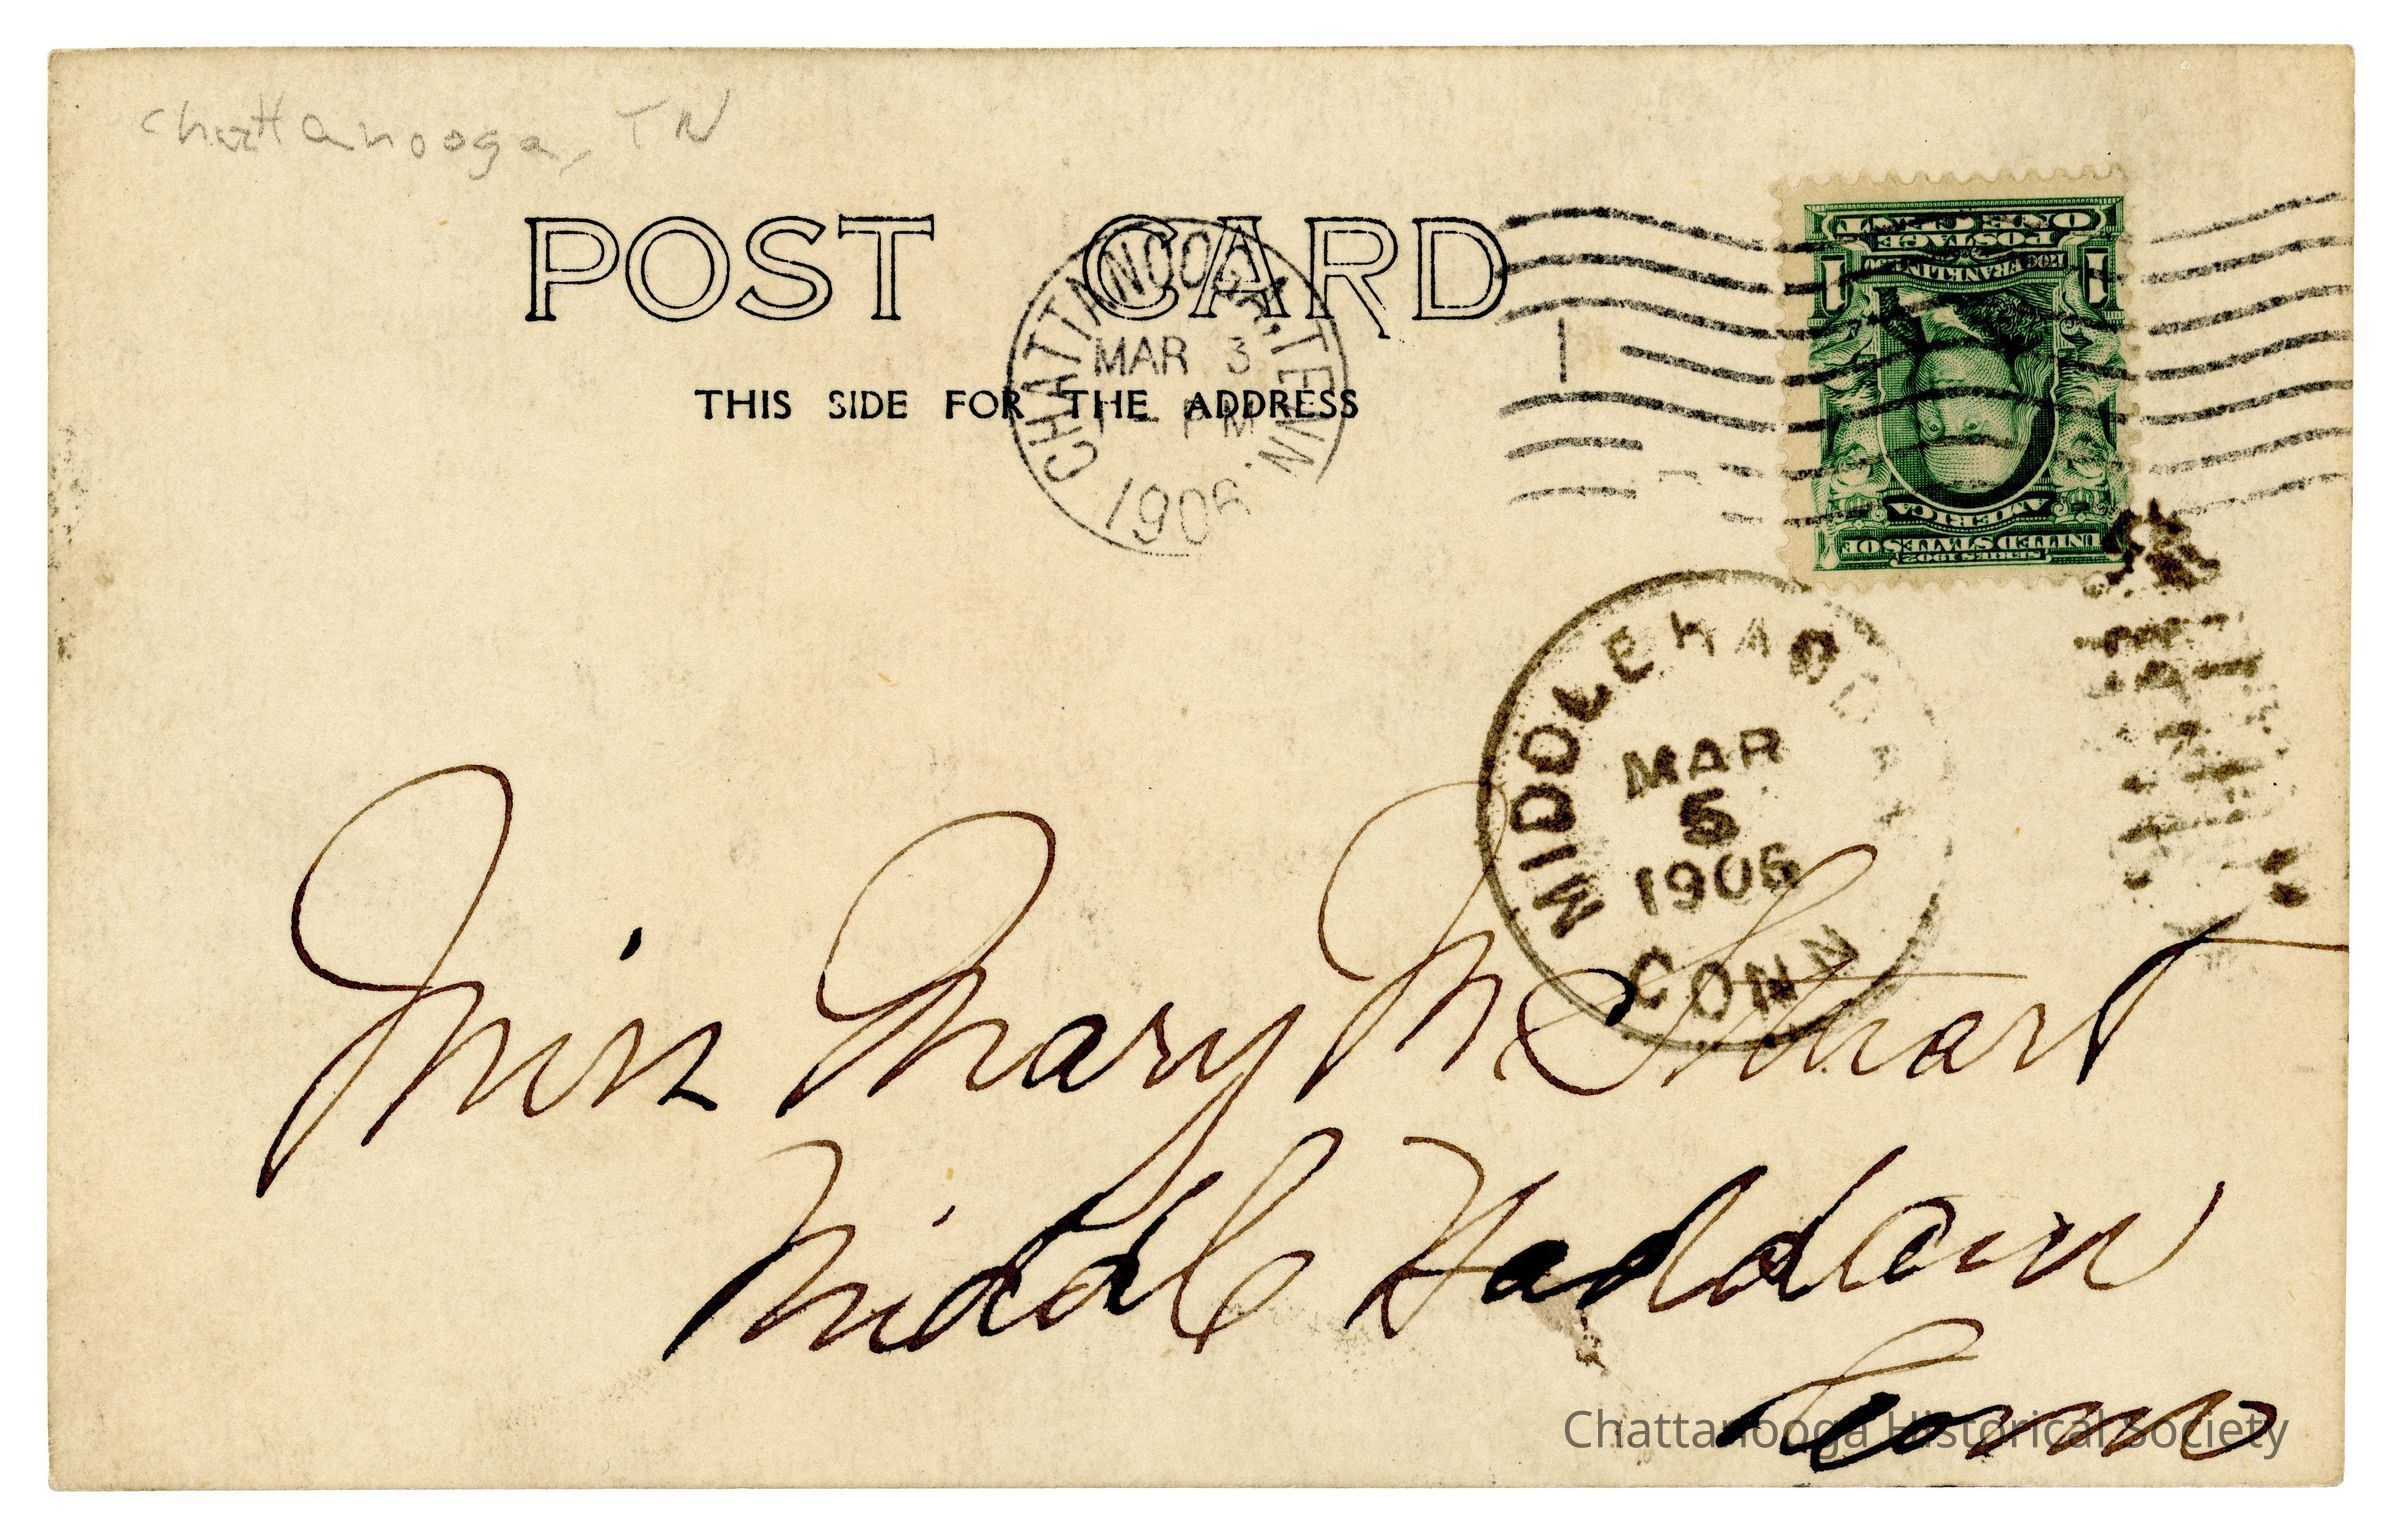 Chattanooga, TN
POST CARD
THIS SIDE FOR THE ADDRESS
CHATTANOOGA, TENN.
MAR 3
PM
1906
ONE CENT
POSTAGE
FRANKLIN
1 1
AMERICA
UNITED STATES OF
SERIES 1902
1
MIDDLE HADDAM
MAR
5
1906
CONN
Miss Mary M Stuart
Middle Haddam
Conn
Chattanooga Historical Society